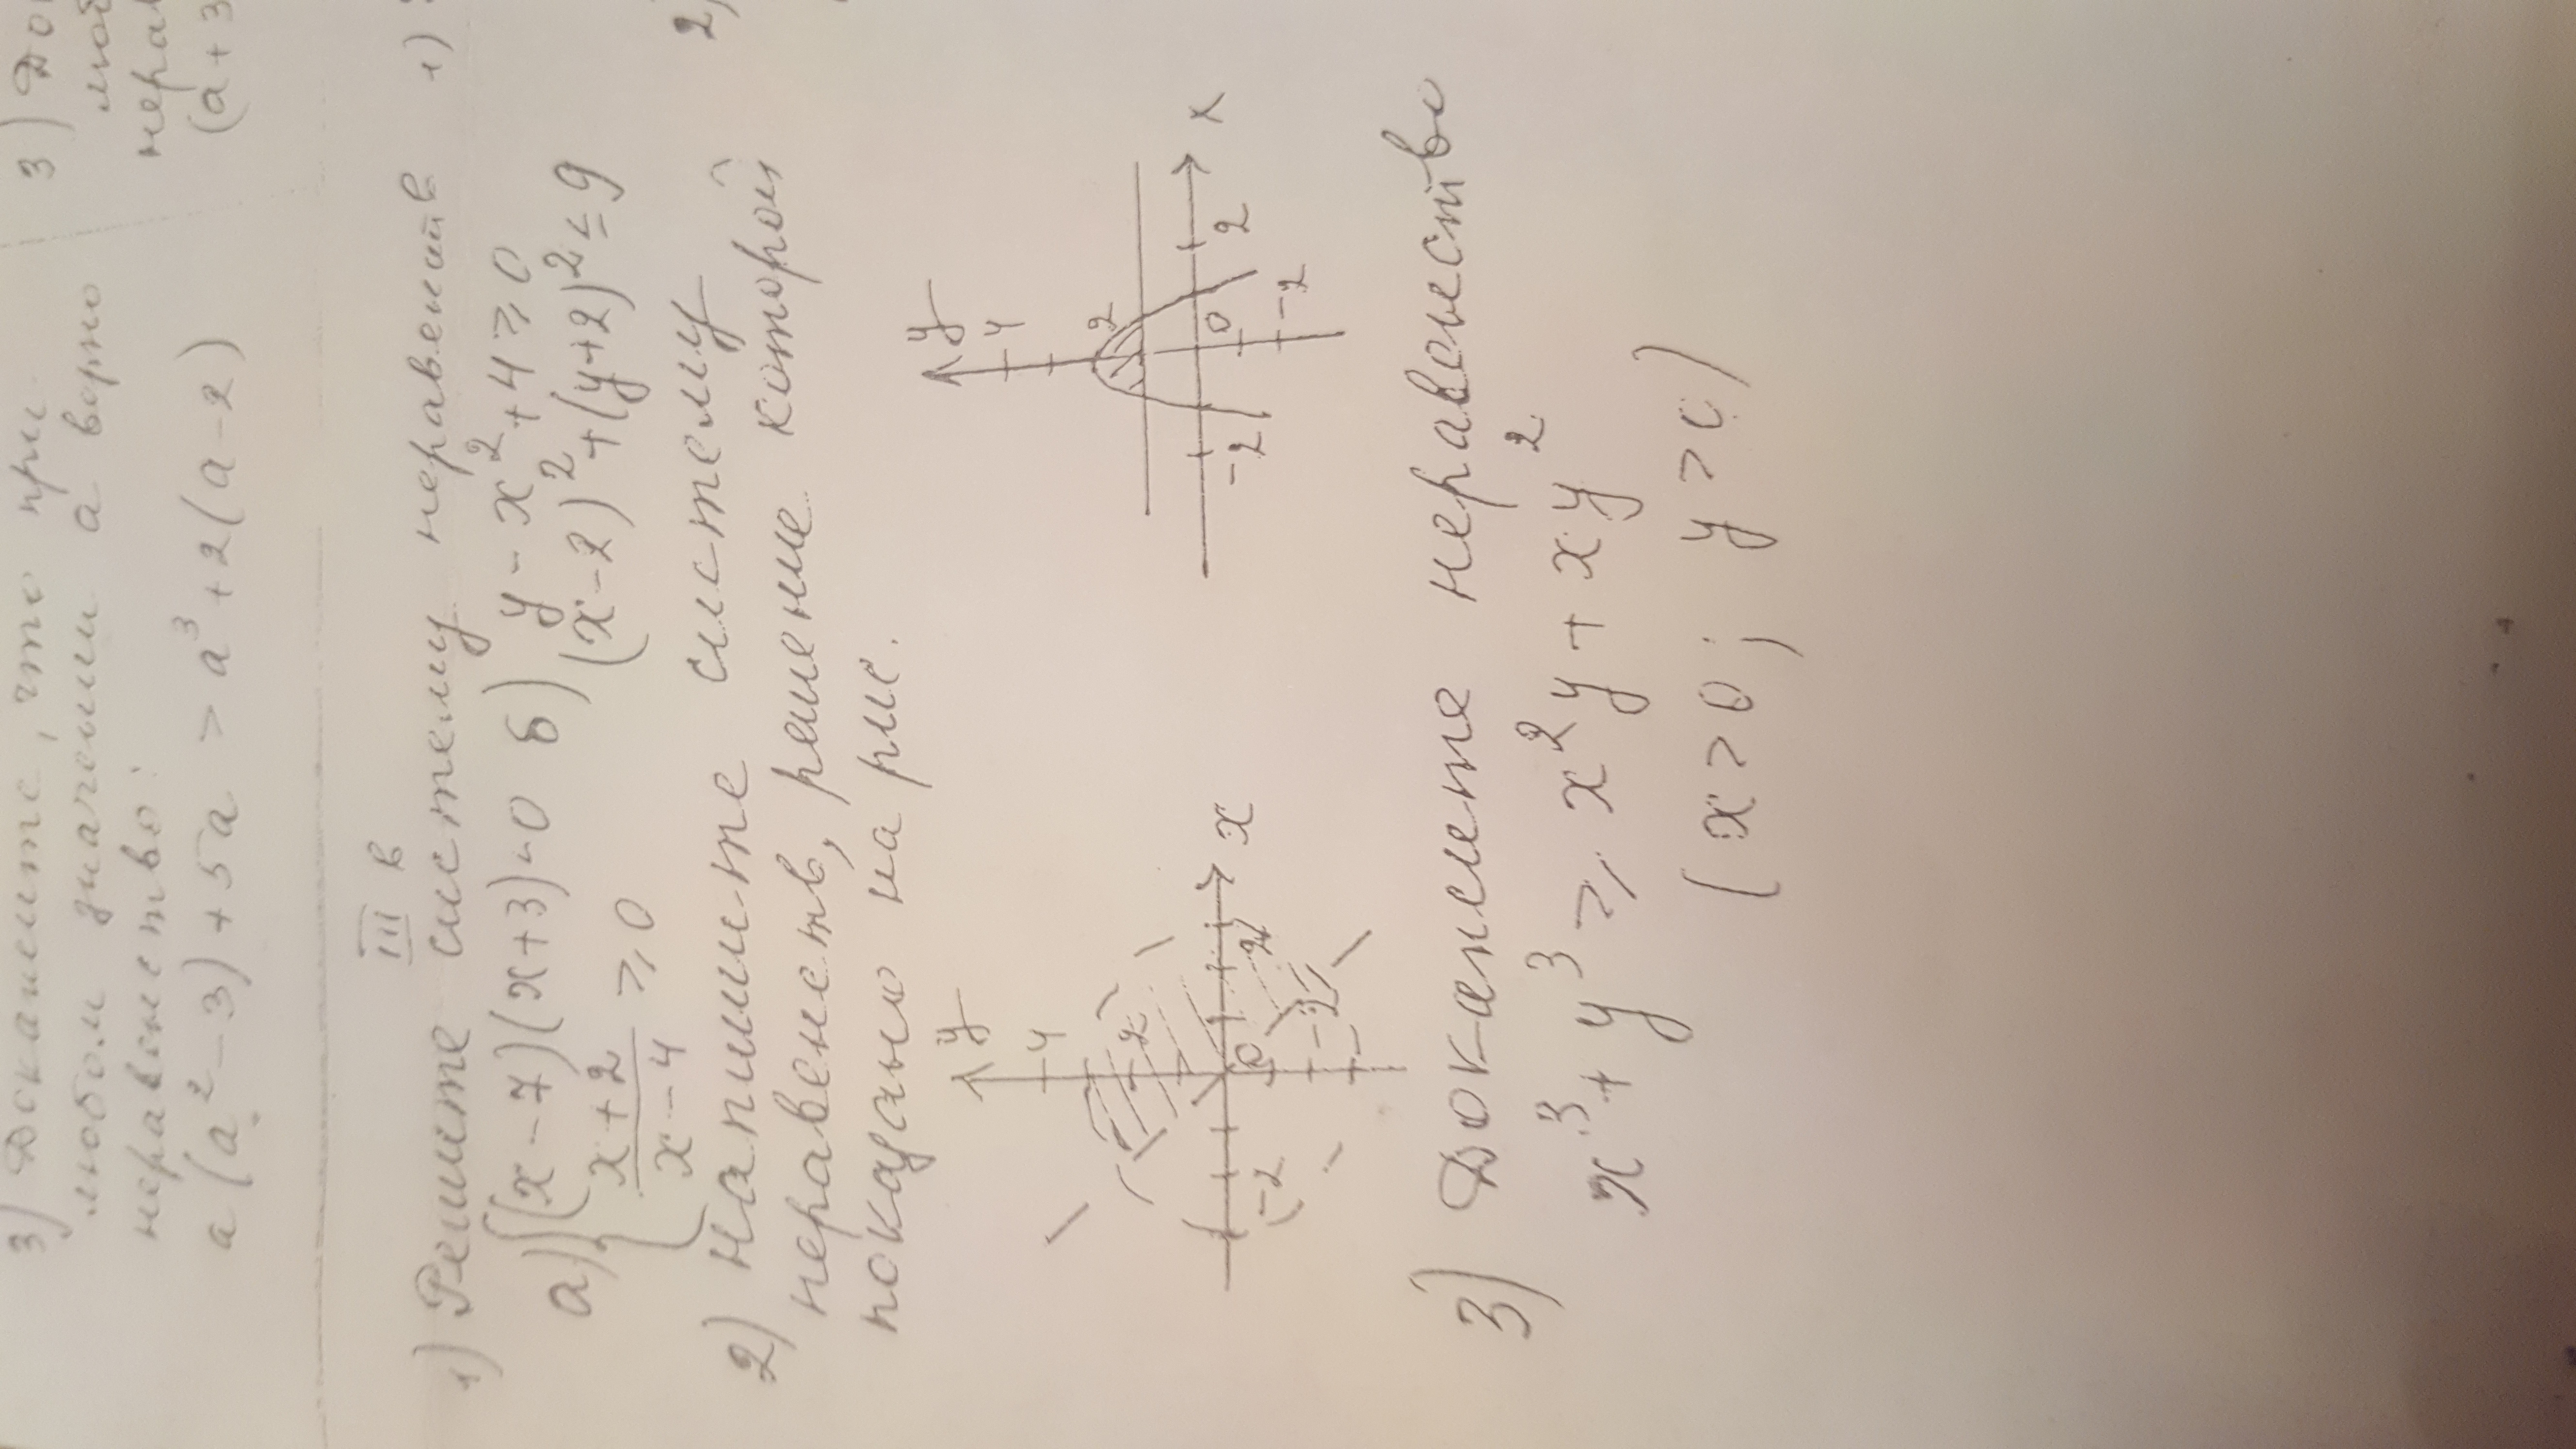 3) Докажите, что при
любом значении a верно
неравенство:
a(a² - 3) + 5a > a³ + 2(a - 2)
3) До
люб
нерав
(a + 3
III в
1) Решите систему неравенств
a) { (x - 7)(x + 3) < 0
x + 2 / x - 4 ≥ 0
б) y - x² + 4 ≥ 0
(x - 2)² + (y + 2)² ≤ 9
2) Напишите систему
неравенств, решение которой
показано на рис.
y
4
2
0
-2
-2
2
x
y
4
2
0
-2
-2
2
x
3) Докажите неравенство
x³ + y³ ≥ x²y + xy²
(x > 0; y > 0)
1)
2)